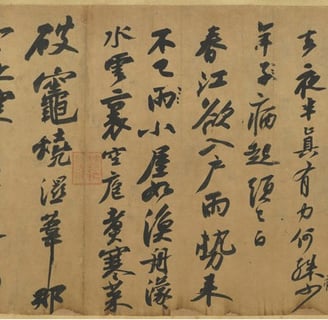 去夜半真有力何殊少
年子病起須已白
春江欲入户雨勢来
不已雨小屋如漁舟濛
水雲裏空庖煮寒菜
破竈燒濕葦那